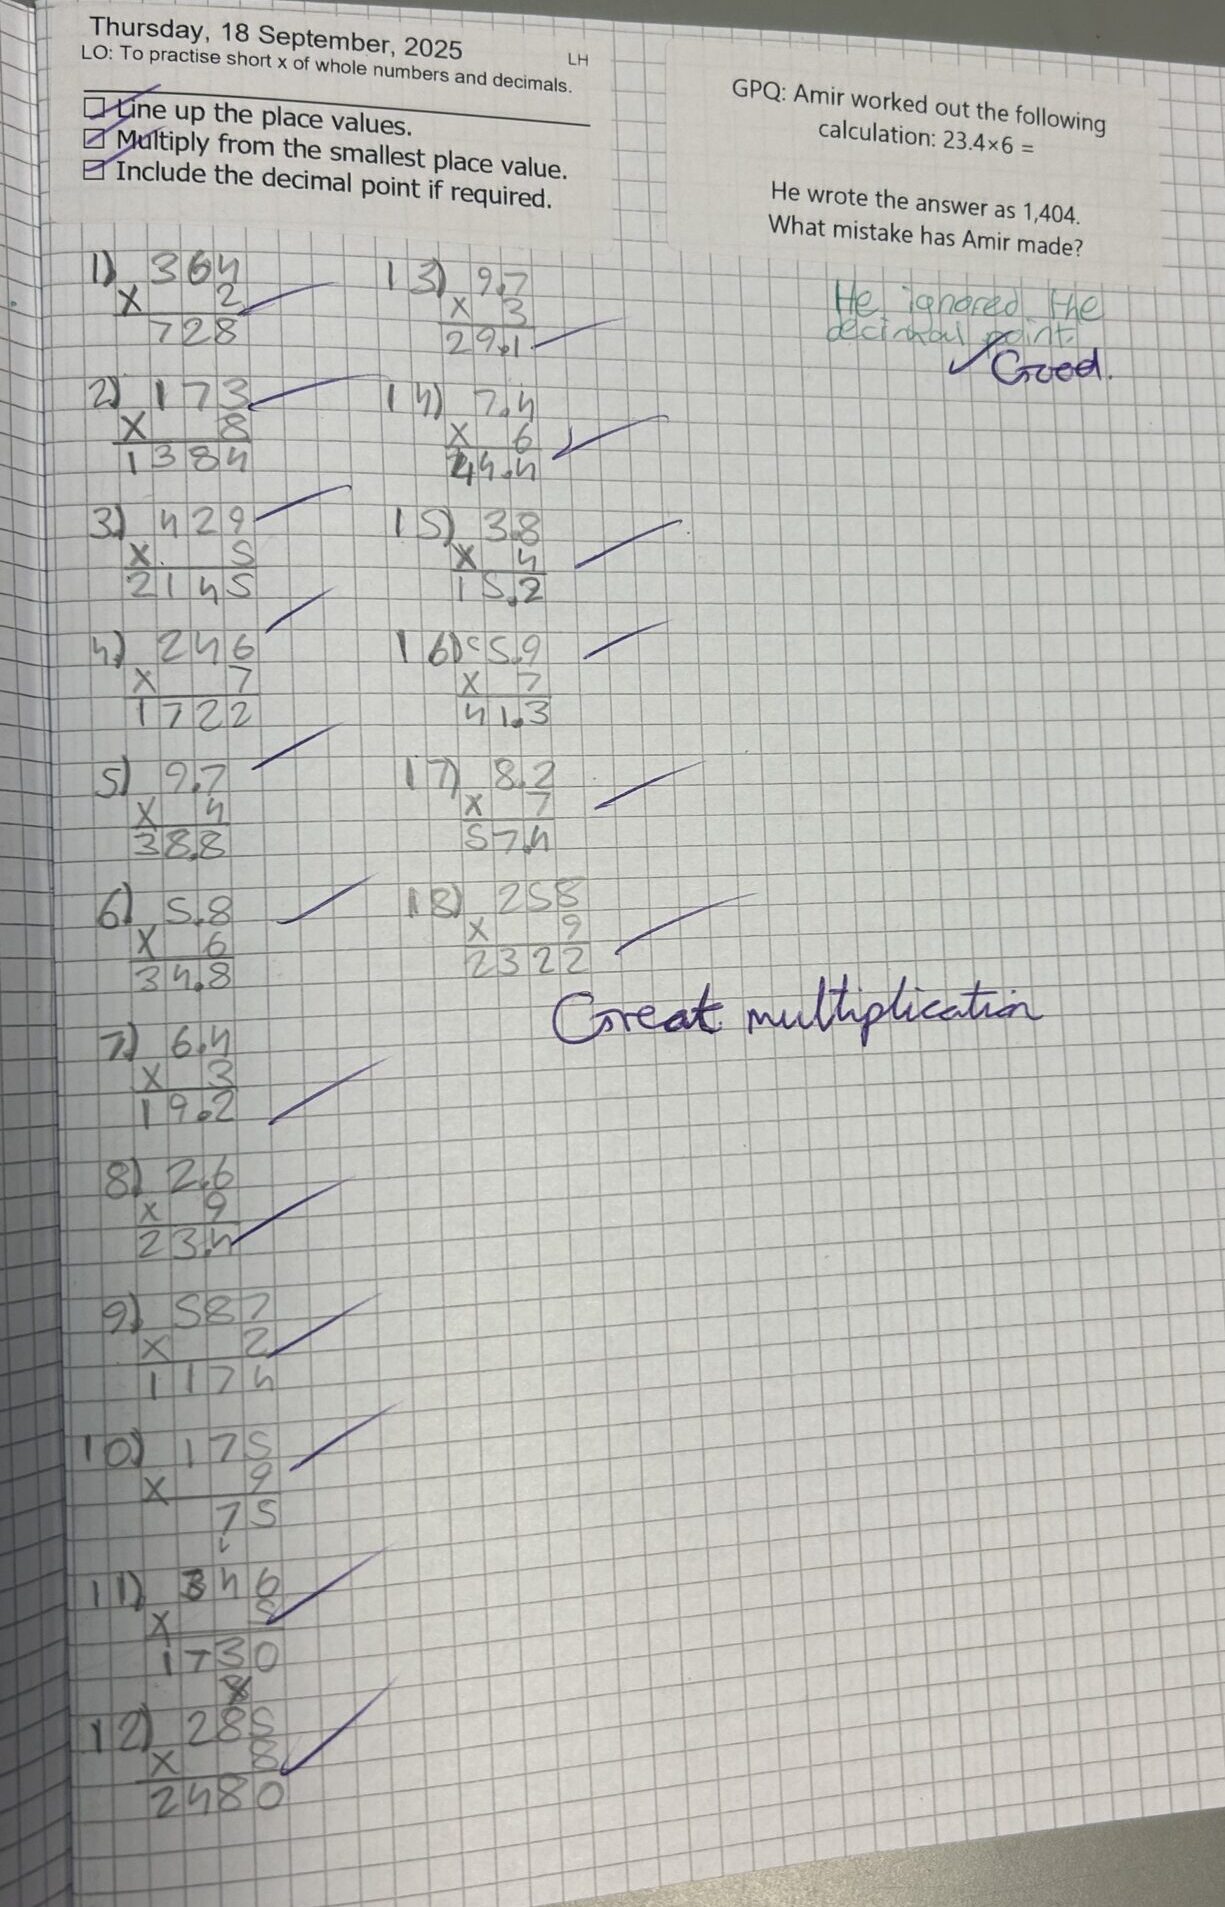 Thursday, 18 September, 2025
LH
LO: To practise short x of whole numbers and decimals.
Line up the place values.
Multiply from the smallest place value.
Include the decimal point if required.
GPQ: Amir worked out the following
calculation: 23.4×6 =
He wrote the answer as 1,404.
What mistake has Amir made?
He ignored the
decimal point.
Good.
1) 364
x 2
728
2) 173
x 8
1384
3) 429
x 5
2145
4) 246
x 7
1722
5) 9.7
x 4
38.8
6) 5.8
x 6
34.8
7) 6.4
x 3
19.2
8) 2.6
x 9
23.4
9) 587
x 2
1174
10) 175
x 9
75
11) 346
x 5
1730
12) 285
x 8
2480
13) 9.7
x 3
29.1
14) 7.4
x 6
44.4
15) 3.8
x 4
15.2
16) 5.9
x 7
41.3
17) 8.2
x 7
57.4
18) 258
x 9
2322
Great multiplication